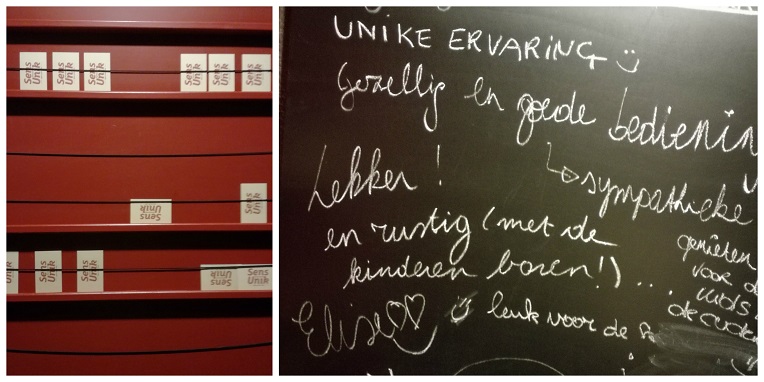 Sens Unik
Sens Unik
Sens Unik
Sens Unik
Sens Unik
Sens Unik
Sens Unik
Sens Unik
Unik
Sens Unik
Sens Unik
Sens Unik
Sens Unik
UNIKE ERVARING
Gezellig en goede bedienin
↳ sympathieke
Lekker !
en rustig (met de
kinderen boven!) ...
genieten
voor d
kids
de ouder
Elise ♡♡
leuk voor de